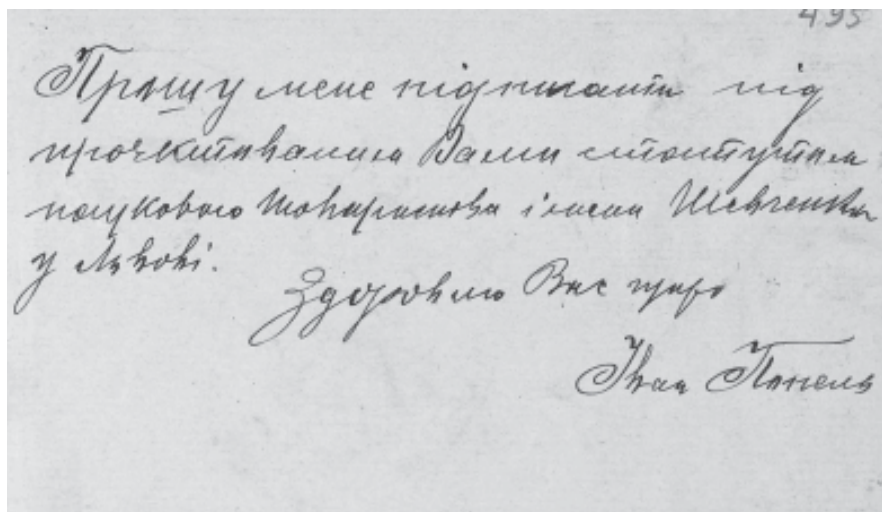 495
Прошу мене підписати під
проєктованим Вами статутом
наукового товариства імени Шевченка
у Львові.
Здоровлю Вас щиро
Іван